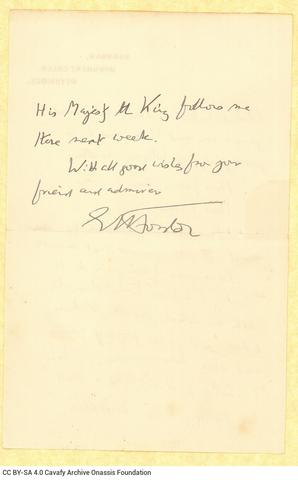 His Majesty the King follows me
there next week.
With all good wishes from your
friend and admirer
EMForster
CC BY-SA 4.0 Cavafy Archive Onassis Foundation